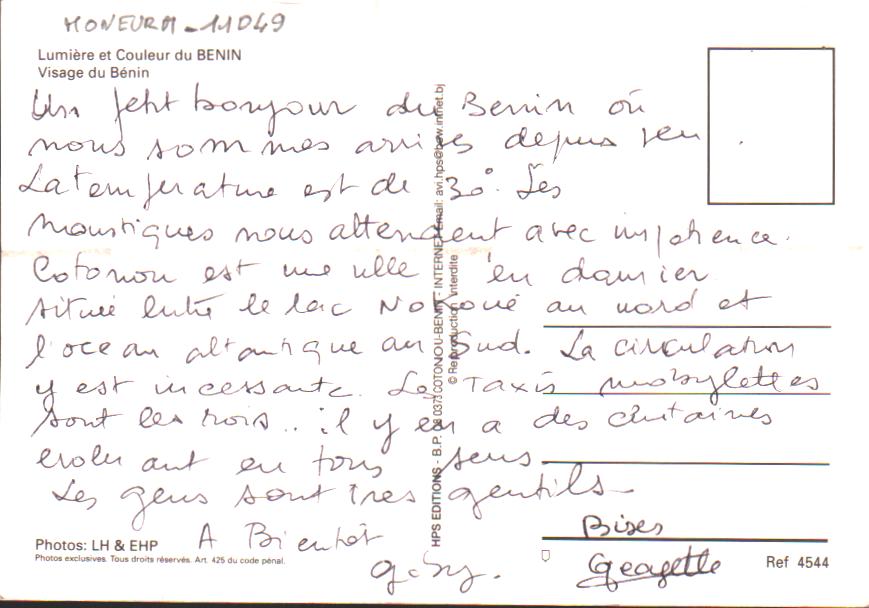 MONEURA-11D49
Lumière et Couleur du BENIN
Visage du Bénin
Un petit bonjour du Benin où
nous sommes arrivés depuis peu
La temperature est de 30°. Les
moustiques nous attendent avec impatience.
Cotonou est une ville en damier
située entre le lac Nokoué au nord et
l'ocean atlantique au Sud. La circulation
y est incessante. Les Taxis mobylettes
sont les rois.. il y en a des centaines
evoluant en tous sens
Les gens sont tres gentils
A Bientôt
Bises
HPS EDITIONS - B.P. 0373 COTONOU-BENIN - INTERNET email: avi.hps@bow.intnet.bj
© Reproduction interdite
Photos: LH & EHP
Photos exclusives. Tous droits réservés. Art. 425 du code pénal.
Ref 4544